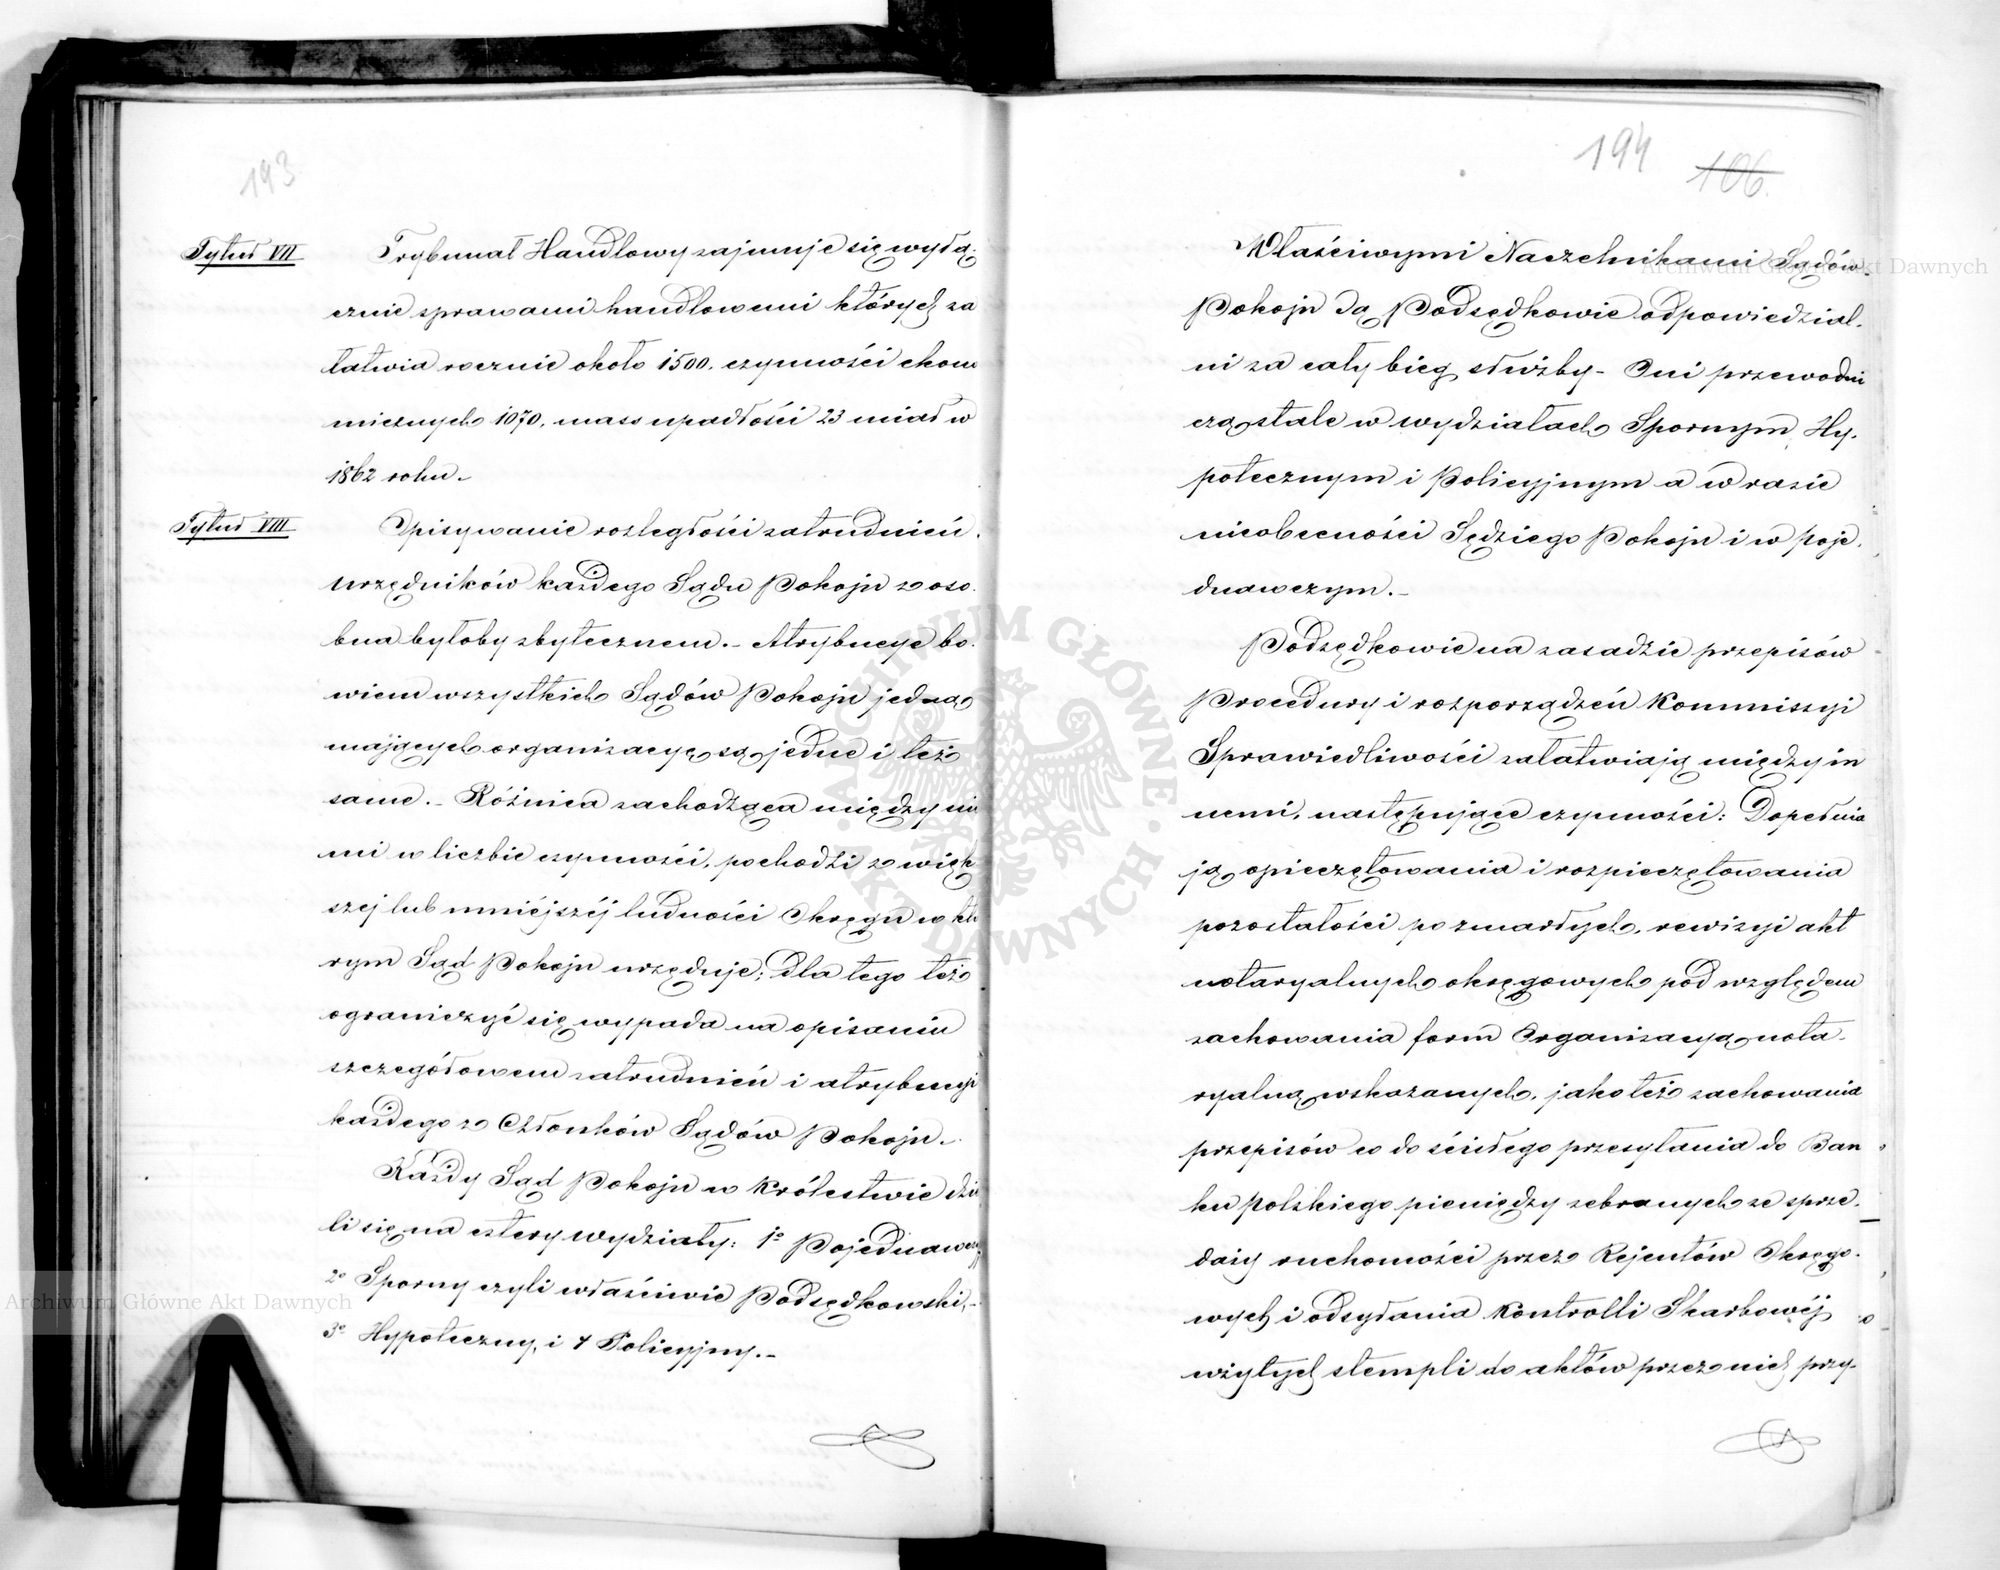 193
Tytuł VII
Trybunał Handlowy zajmuje się wyłą-
cznie sprawami handlowemi których za
łatwia rocznie około 1500. czynności ekono
micznych 1070, mass upadłości 23 miał w
1862 roku.-
Tytuł VIII
Opisywanie rozległości zatrudnień
urzędników każdego Sądu Pokoju z oso-
bna byłoby zbytecznem.- Atrybucye bo-
wiem wszystkich Sądów Pokoju jedną
mających organizacyę są jedne i też
same.- Różnica zachodząca między nie
mi w liczbie czynności, pochodzi z więk
szej lub mniéjszéj ludności Okręgu w któ
rym Sąd Pokoju urzęduje; dla tego też
ograniczyć się wypada na opisaniu
szczegółowem zatrudnień i atrybucyi
każdego z Członków Sądów Pokoju.-
Każdy Sąd Pokoju w Królestwie dzie
li się na cztery wydziały: 1o Pojednawczy
2o Sporny czyli właściwie Podsędkowski,-
3o Hypoteczny, i 4 Policyjny.-
194 106.
Właściwymi Naczelnikami Sądów-
Pokoju są Podsędkowie odpowiedzial-
ni za cały bieg służby- Oni przewodni
czą stale w wydziałach Spornym, Hy-
potecznym i Policyjnym a w razie
nieobecności Sędziego Pokoju i w poje-
dnawczym.-
Podsędkowie na zasadzie przepisów
Procedury i rozporządzeń Kommissyi
Sprawiedliwości załatwiają między in
nemi, następujące czynności: Dopełnia
ją opieczętowania i rozpieczętowania
pozostałości po zmarłych, rewizyi akt
notaryalnych okręgowych pod względem
zachowania form Organizacyą nota-
ryalną wskazanych, jako też zachowania
przepisów co do ścisłego przesyłania do Ban
ku Polskiego pieniędzy zebranych ze sprze-
daży ruchomości przez Rejentów Okręgo-
wych i odsyłania Kontrolli Skarbowéj
użytych stempli do aktów przez nich przy-
Archiwum Główne Akt Dawnych
Archiwum Główne Akt Dawnych
ARCHIWUM GŁÓWNE AKT DAWNYCH